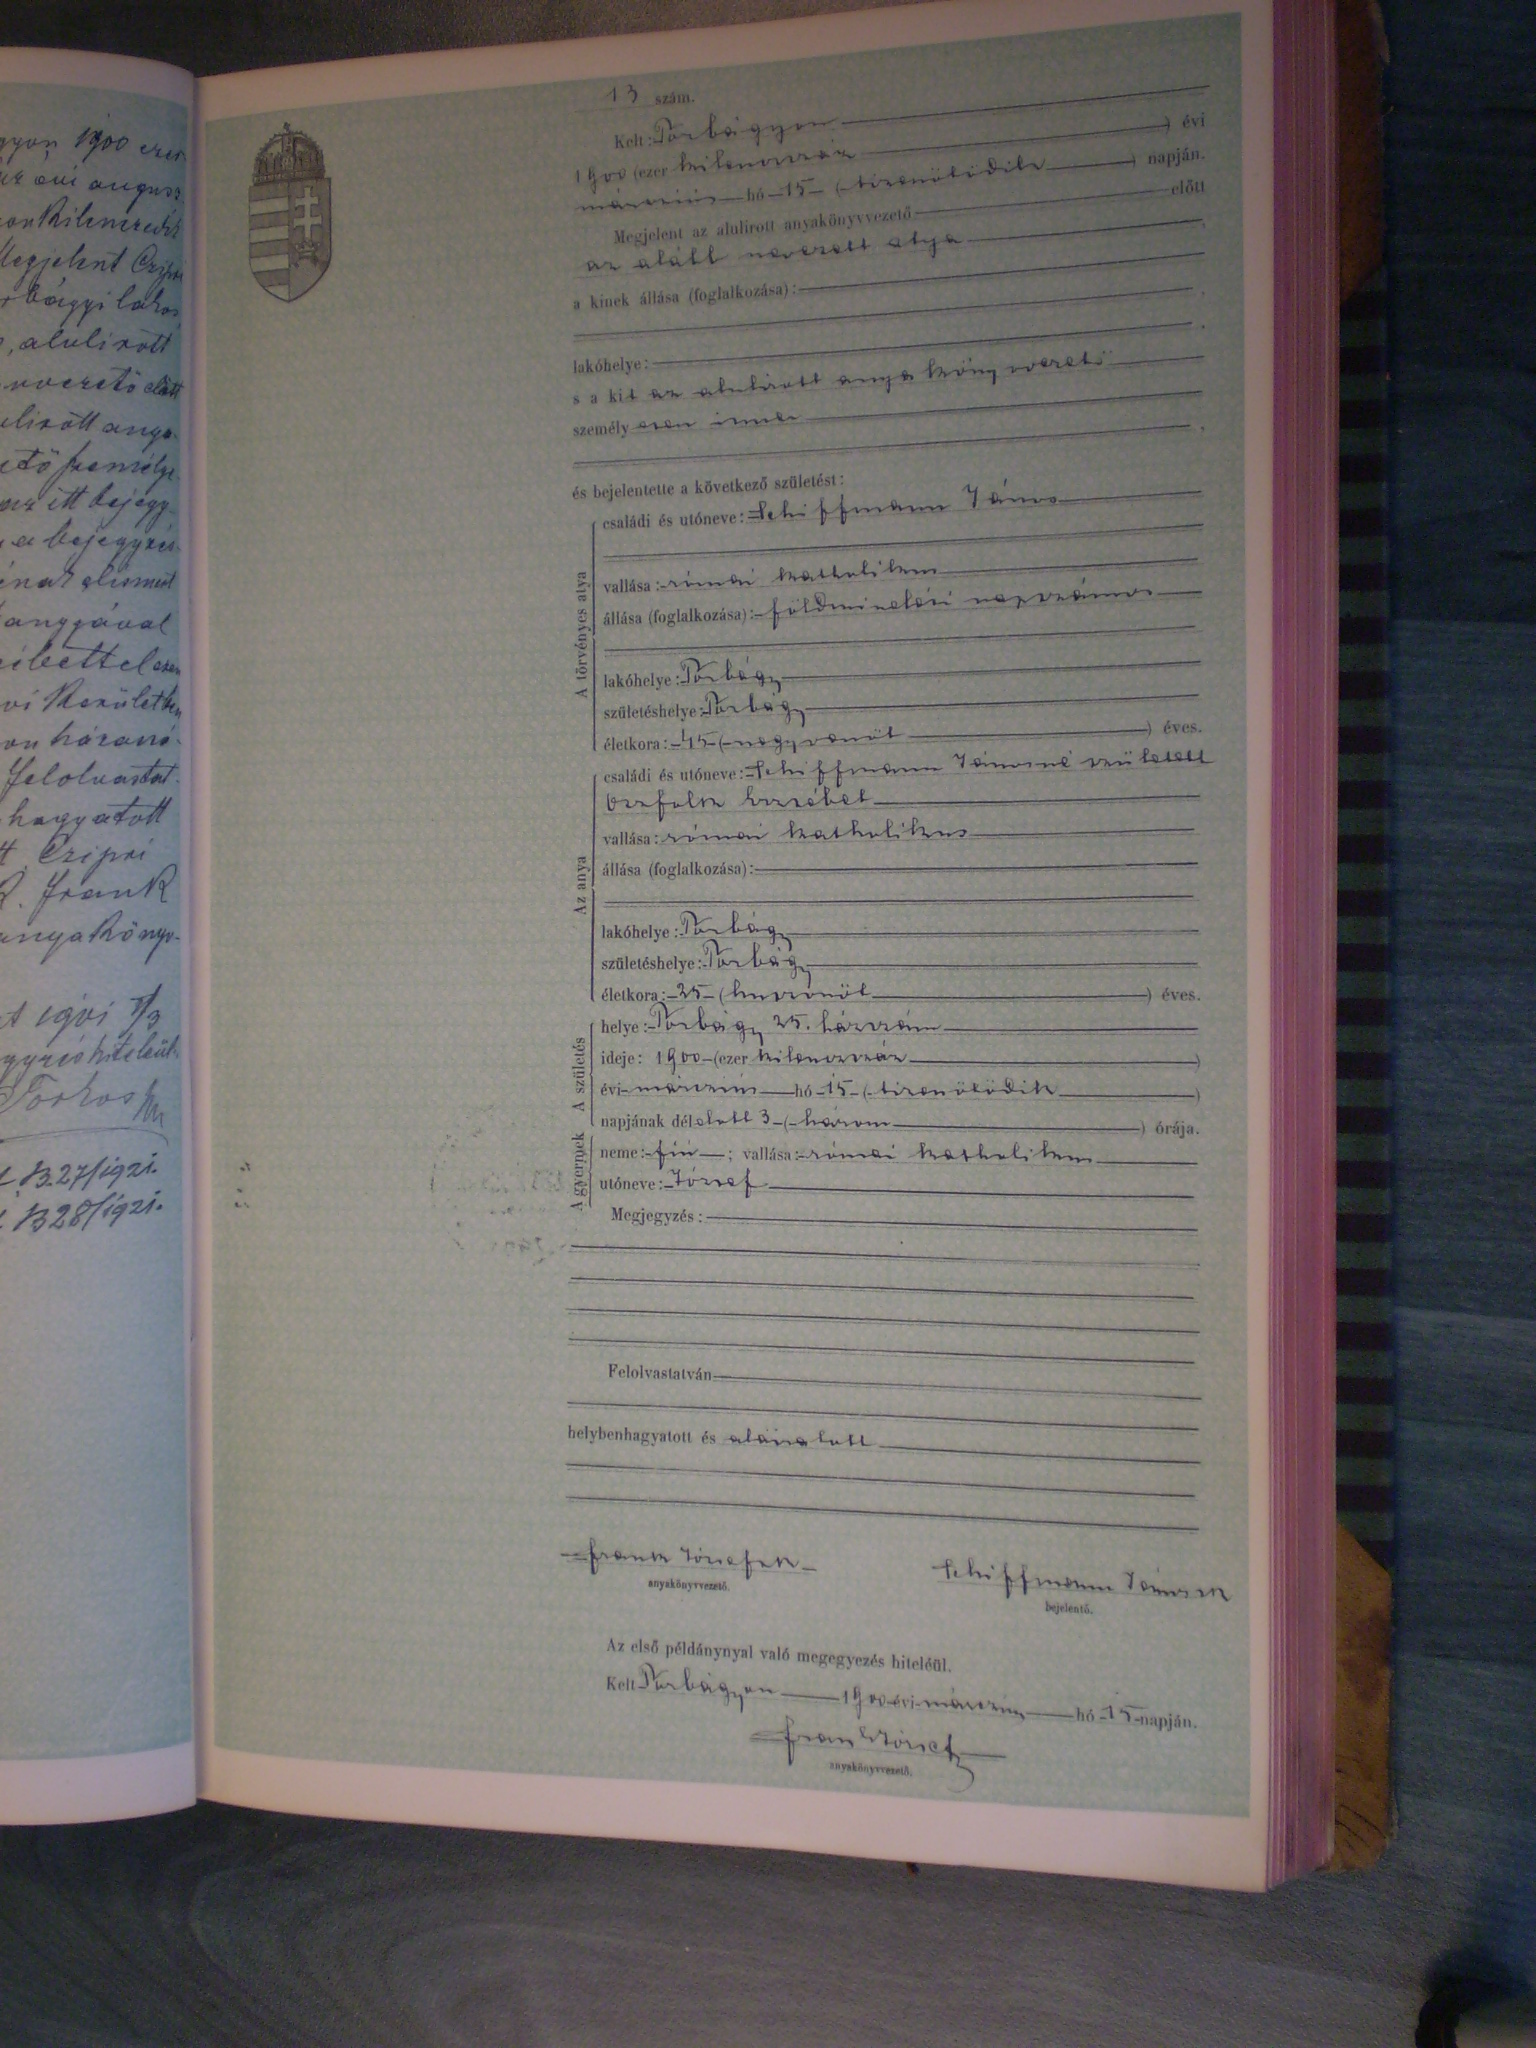 gyon 1900 ezer
évi augusz
Megjelent Czipri
bágyi lakos
, alulirott
vezető előtt
alirott anya-
ető személye
az itt bejegy
a bejegyzés
anyjával
vi kerületben
felolvastat-
hagyatott
Czipri
Frank
anyakönyv-
B.27/1921.
B 28/1921.
13 szám.
Kelt: Torbágyon
1900 (ezer kilenczszáz ) évi
márczius hó 15 (tizenötödik ) napján.
Megjelent az alulirott anyakönyvvezető előtt
az alább nevezett atya
a kinek állása (foglalkozása):
lakóhelye:
s a kit az alulirott anyakönyvvezető
személyesen ismer
és bejelentette a következő születést:
A törvényes atya
családi és utóneve: Schiffmann János
vallása: római katholikus
állása (foglalkozása): földmivelési napszámos
lakóhelye: Torbágy
születéshelye: Torbágy
életkora: 45 (negyvenöt ) éves.
Az anya
családi és utóneve: Schiffmann Jánosné született
Erzsébet
vallása: római katholikus
állása (foglalkozása):
lakóhelye: Torbágy
születéshelye: Torbágy
életkora: 25 (huszonöt ) éves.
A születés
helye: Torbágy 25. házszám
ideje: 1900 (ezer kilenczszáz )
évi márczius hó 15 (tizenötödik )
napjának délelott 3 (három ) órája.
A gyermek
neme: fiú ; vallása: római katholikus
utóneve: József
Megjegyzés:
Felolvastatván
helybenhagyatott és aláiratott
Frank József sk Schiffmann János sk
anyakönyvvezető. bejelentő.
Az első példánynyal való megegyezés hiteléül.
Kelt Torbágyon 1900 évi márczius hó 15 napján.
Frank József
anyakönyvvezető.